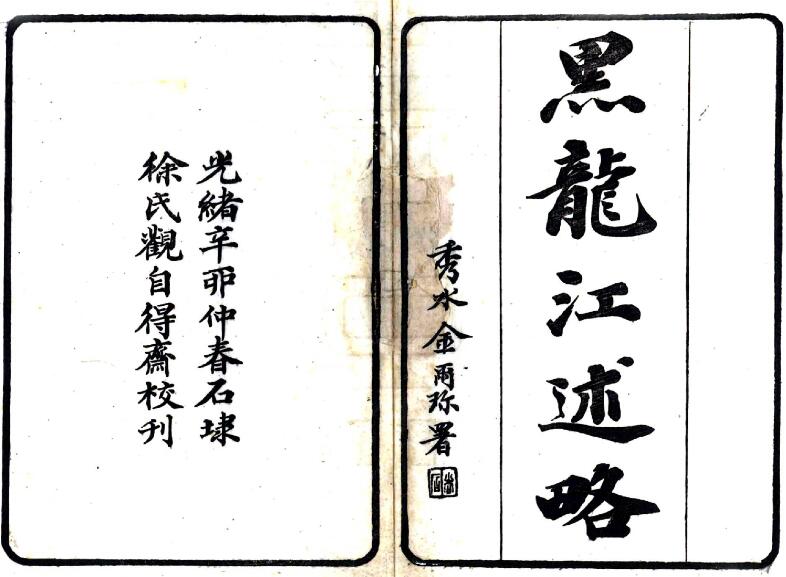 黑龍江述略
秀水金爾珎署
光緒辛卯仲春石埭
徐氏觀自得齋校刊